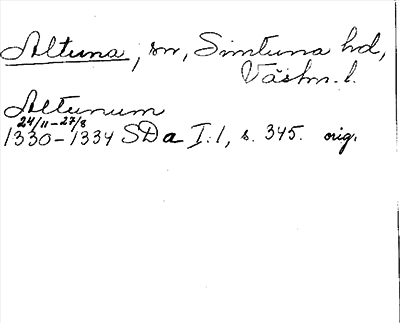 Altuna, sn, Simtuna hd,
Västm. l.
Altunum
24/11-27/8
1330-1334 SDa I:1, s. 345. orig.